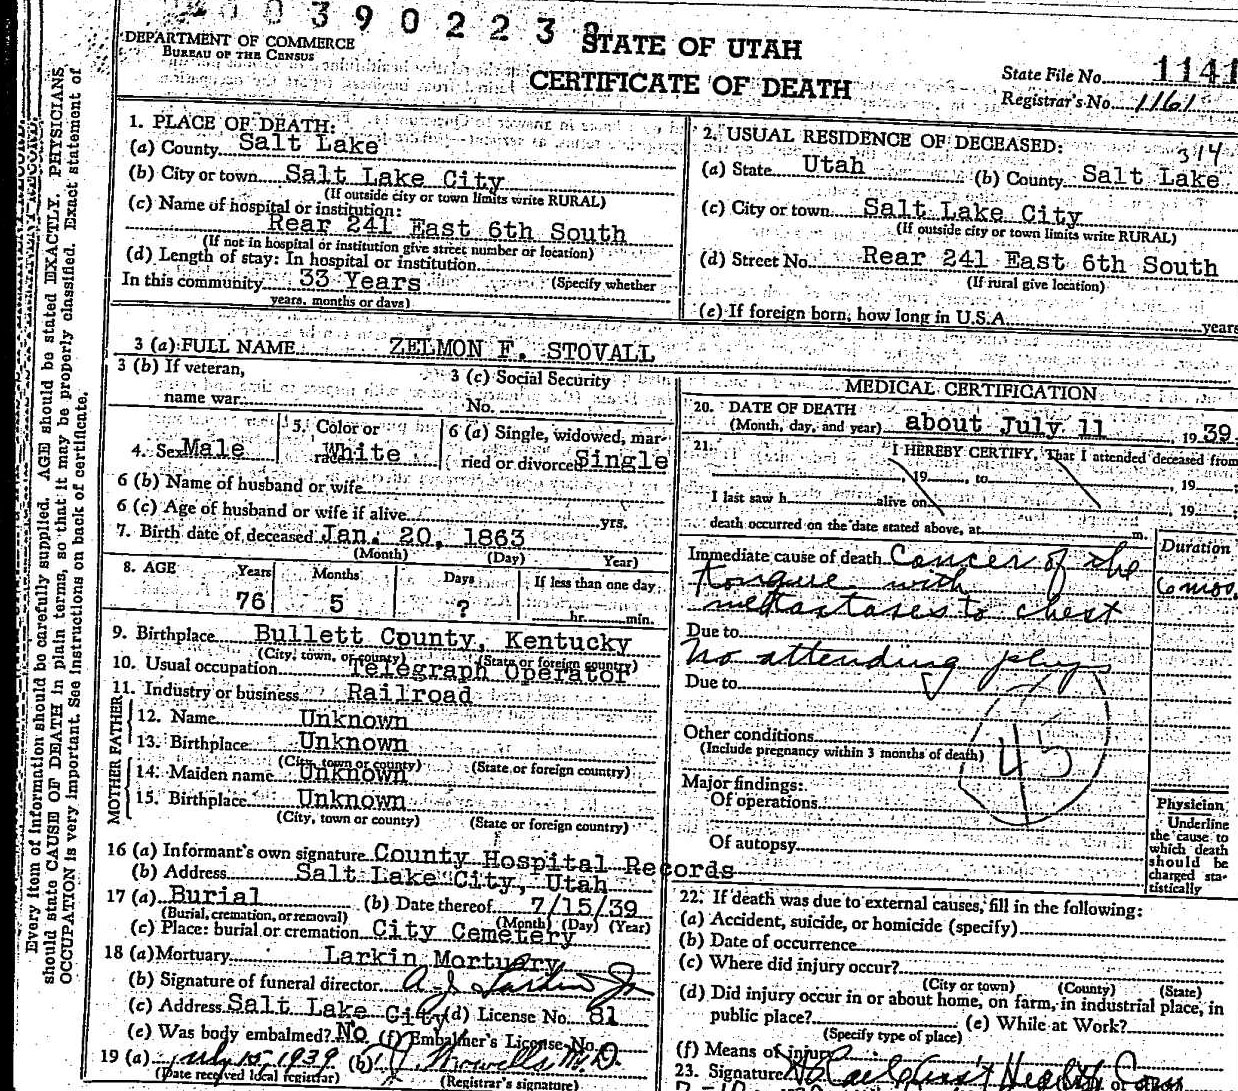 00390223
DEPARTMENT OF COMMERCE
BUREAU OF THE CENSUS
STATE OF UTAH
CERTIFICATE OF DEATH
State File No. 1141
Registrar's No. 1161
Every item of information should be carefully supplied. AGE should be stated EXACTLY. PHYSICIANS
should state CAUSE OF DEATH in plain terms, so that it may be properly classified. Exact statement of
OCCUPATION is very important. See instructions on back of certificate.
1. PLACE OF DEATH:
(a) County Salt Lake
(b) City or town Salt Lake City
(If outside city or town limits write RURAL)
(c) Name of hospital or institution:
Rear 241 East 6th South
(If not in hospital or institution give street number or location)
(d) Length of stay: In hospital or institution
In this community 33 Years (Specify whether
years, months or days)
2. USUAL RESIDENCE OF DECEASED:
314
(a) State Utah (b) County Salt Lake
(c) City or town Salt Lake City
(If outside city or town limits write RURAL)
(d) Street No. Rear 241 East 6th South
(If rural give location)
(e) If foreign born, how long in U.S.A. years
3 (a) FULL NAME ZELMON F. STOVALL
3 (b) If veteran,
name war
3 (c) Social Security
No.
4. Sex Male
5. Color or
race White
6 (a) Single, widowed, mar-
ried or divorced Single
6 (b) Name of husband or wife
6 (c) Age of husband or wife if alive yrs.
7. Birth date of deceased Jan. 20, 1863
(Month) (Day) Year)
8. AGE Years Months Days If less than one day
76 5 ? hr. min.
9. Birthplace Bullett County, Kentucky
(City, town, or county) (State or foreign country)
10. Usual occupation Telegraph Operator
11. Industry or business Railroad
FATHER
12. Name Unknown
13. Birthplace Unknown
(City, town or county) (State or foreign country)
MOTHER
14. Maiden name Unknown
15. Birthplace Unknown
(City, town or county) (State or foreign country)
16 (a) Informant's own signature County Hospital Records
(b) Address Salt Lake City, Utah
17 (a) Burial (b) Date thereof 7/15/39
(Burial, cremation, or removal) (Month) (Day) (Year)
(c) Place: burial or cremation City Cemetery
18 (a) Mortuary Larkin Mortuary
(b) Signature of funeral director A. J. Larkin Jr
(c) Address Salt Lake City (d) License No. 81
(e) Was body embalmed? No (f) Embalmer's License No.
19 (a) July 15, 1939 (b) M.D.
(Date received local registrar) (Registrar's signature)
MEDICAL CERTIFICATION
20. DATE OF DEATH
(Month, day, and year) about July 11, 1939
21. I HEREBY CERTIFY, That I attended deceased from
, 19 , to , 19 ;
I last saw h alive on , 19 ;
death occurred on the date stated above, at m.
Duration
Immediate cause of death Cancer of the
tongue with 6 mos.
metastases to chest
Due to
No attending phys
Due to
Other conditions
(Include pregnancy within 3 months of death)
45
Major findings:
Of operations
Of autopsy
Physician
Underline
the cause to
which death
should be
charged sta-
tistically
22. If death was due to external causes, fill in the following:
(a) Accident, suicide, or homicide (specify)
(b) Date of occurrence
(c) Where did injury occur?
(City or town) (County) (State)
(d) Did injury occur in or about home, on farm, in industrial place, in
public place? (e) While at Work?
(Specify type of place)
(f) Means of injury
23. Signature Health